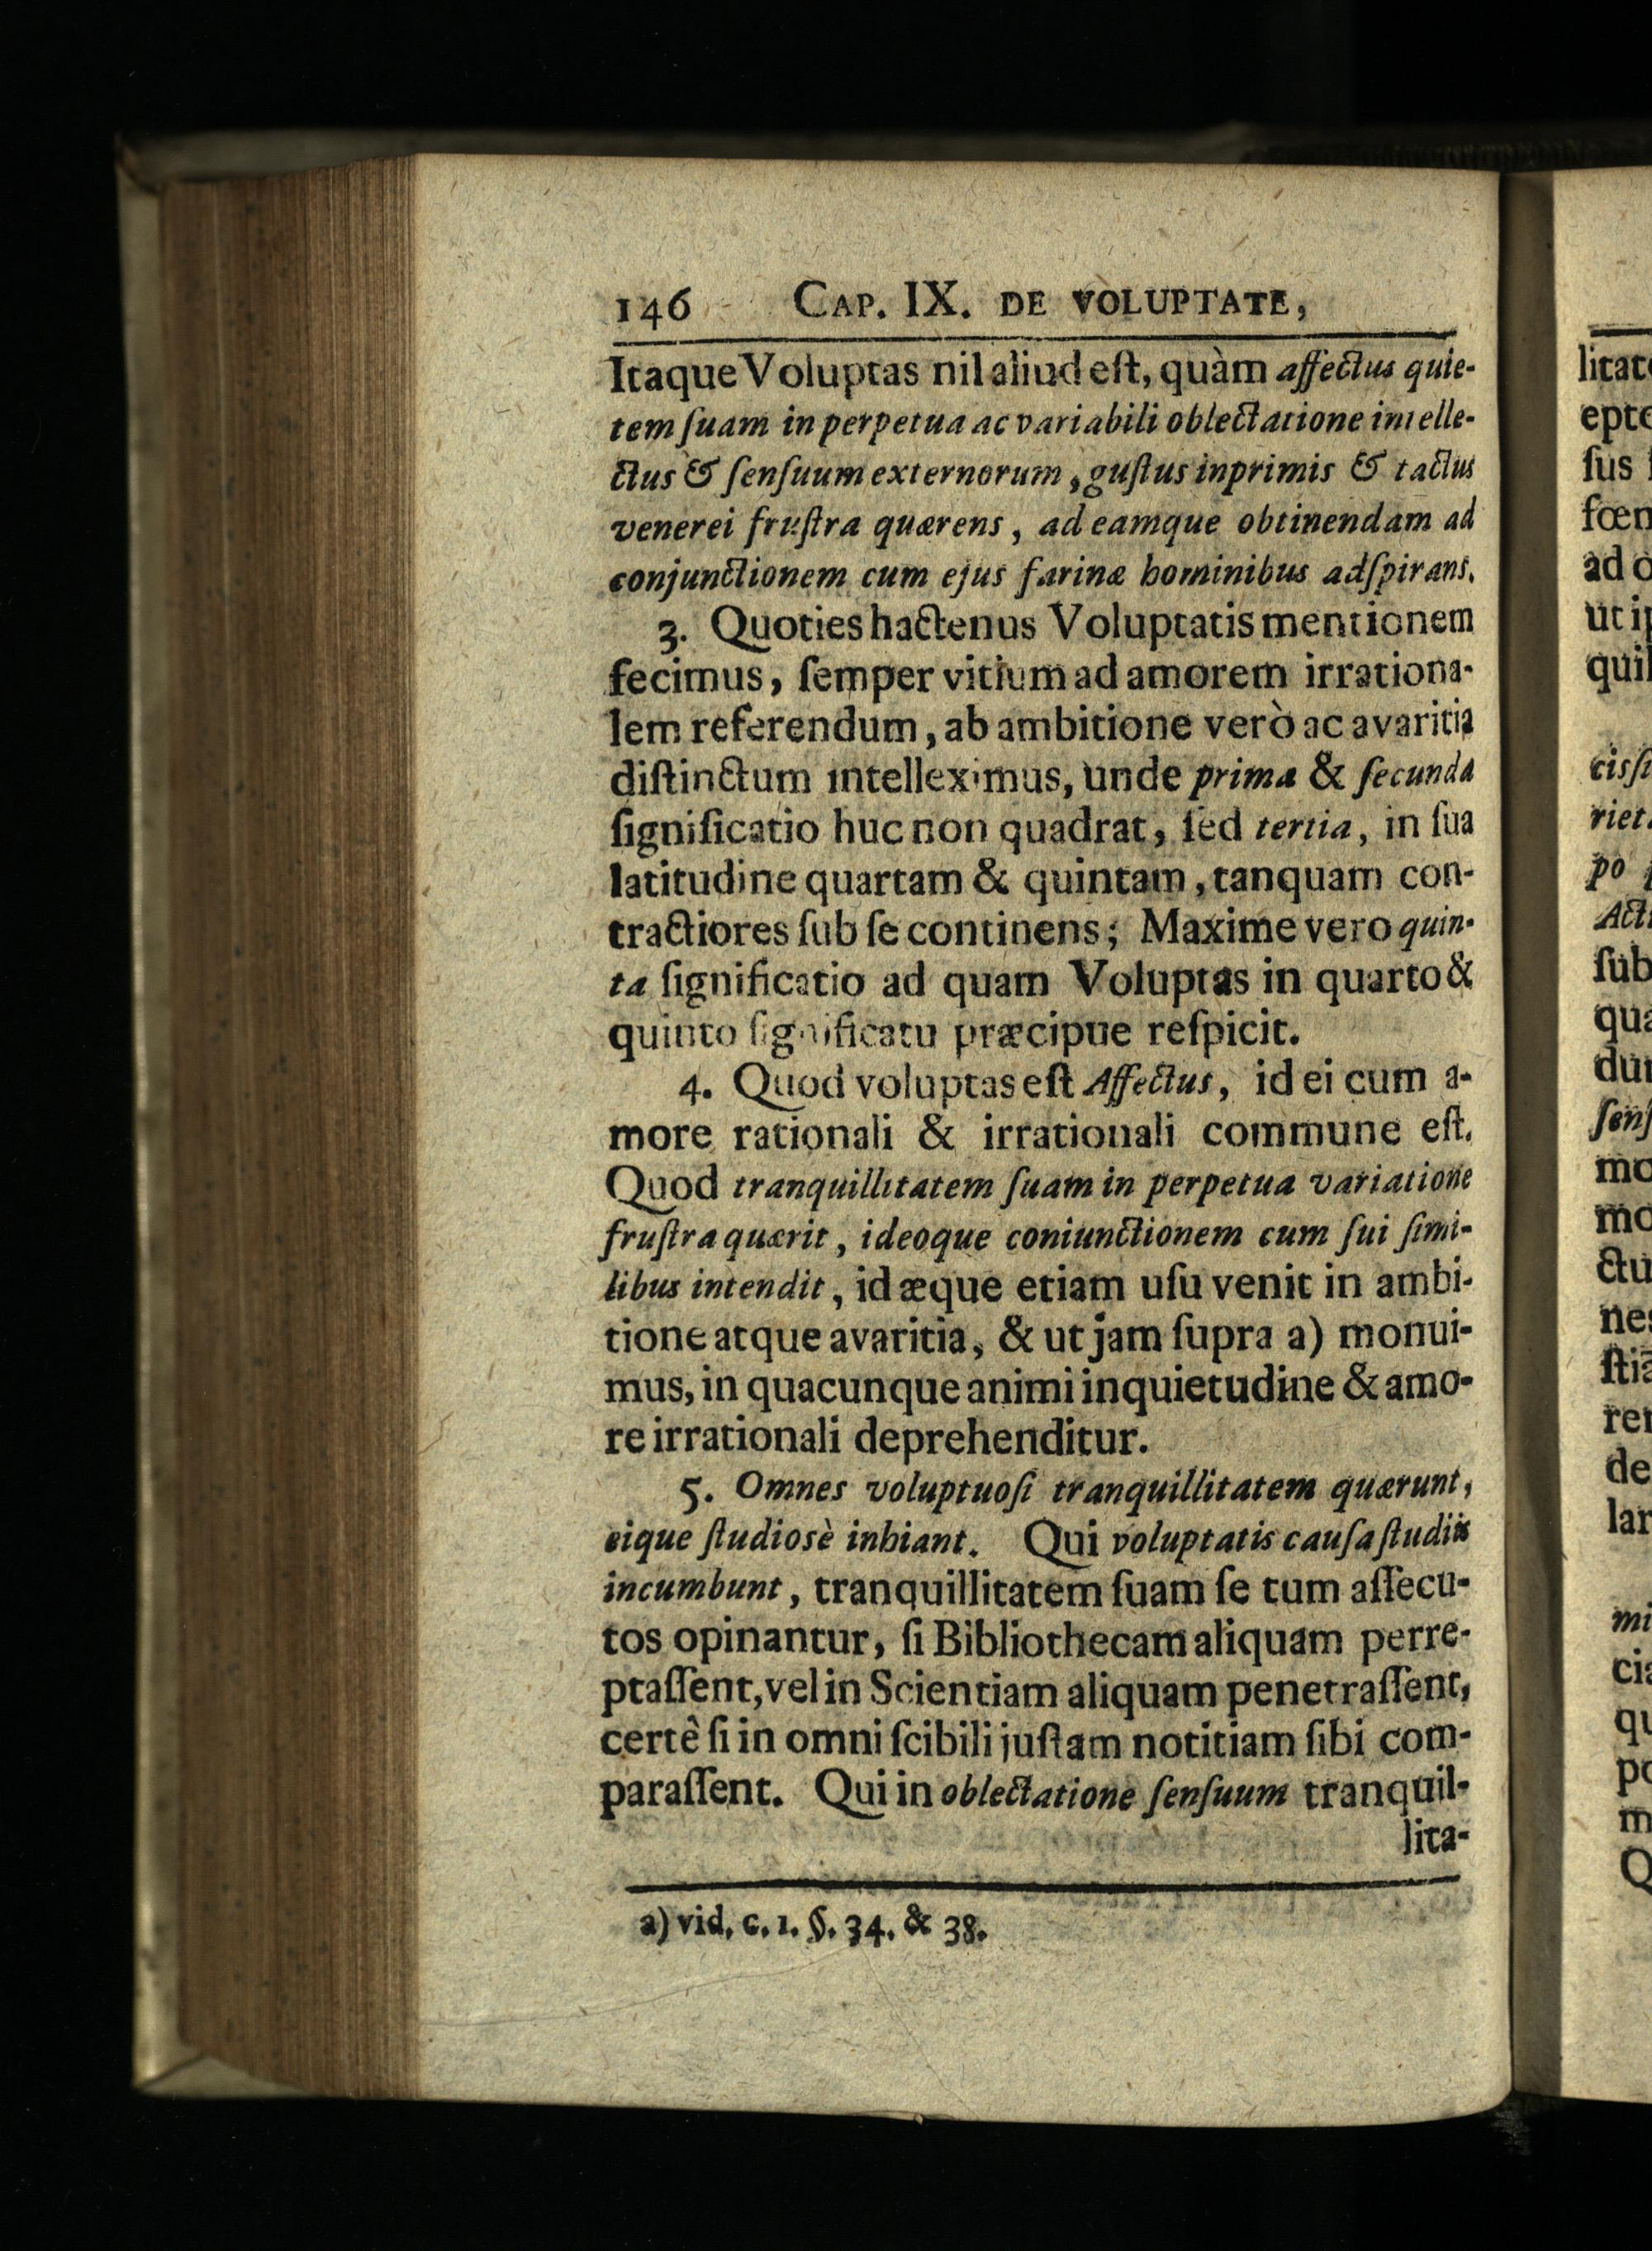 146 CAP. IX. DE VOLUPTATE,
Itaque Voluptas nil aliud eſt, quàm affectus quie-
tem ſuam in perpetua ac variabili oblectatione intelle-
ctus & ſenſuum externorum, guſtus inprimis & tactus
venerei fruſtra quærens, ad eamque obtinendam ad
conjunctionem cum ejus farinæ hominibus adſpirans.
3. Quoties hactenus Voluptatis mentionem
fecimus, ſemper vitium ad amorem irrationa-
lem referendum, ab ambitione verò ac avaritia
diſtinctum intelleximus, unde prima & ſecunda
ſignificatio huc non quadrat, ſed tertia, in ſua
latitudine quartam & quintam, tanquam con-
tractiores ſub ſe continens; Maxime vero quin-
ta ſignificatio ad quam Voluptas in quarto &
quinto ſignificatu præcipue reſpicit.
4. Quod voluptas eſt Affectus, id ei cum a-
more rationali & irrationali commune eſt.
Quod tranquillitatem ſuam in perpetua variatione
fruſtra quærit, ideoque coniunctionem cum ſui ſimi-
libus intendit, id æque etiam uſu venit in ambi-
tione atque avaritia, & ut jam ſupra a) monui-
mus, in quacunque animi inquietudine & amo-
re irrationali deprehenditur.
5. Omnes voluptuoſi tranquillitatem quærunt,
eique ſtudiosè inhiant. Qui voluptatis cauſa ſtudiis
incumbunt, tranquillitatem ſuam ſe tum aſſecu-
tos opinantur, ſi Bibliothecam aliquam perre-
ptaſſent, vel in Scientiam aliquam penetraſſent,
certè ſi in omni ſcibili juſtam notitiam ſibi com-
paraſſent. Qui in oblectatione ſenſuum tranquil-
lita-
a) vid. c. 1. §. 34. & 38.